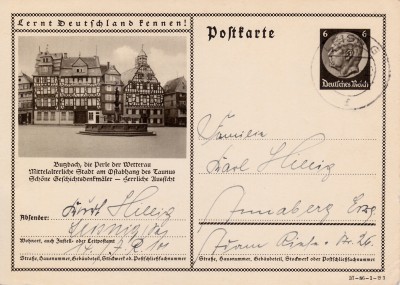 Lernt Deutschland kennen!
Butzbach, die Perle der Wetterau
Mittelalterliche Stadt am Ostabhang des Taunus
Schöne Geschichtsdenkmäler — Herrliche Aussicht
Absender: Kurt Hillig
Wohnort, auch Zustell- oder Leitpostamt
Straße, Hausnummer, Gebäudeteil, Stockwerk od. Postschließfachnummer
Postkarte
6 6
Deutsches Reich
Familie
Karl Hillig
Annaberg Erzg
Adam Riese-Str. 26.
Straße, Hausnummer, Gebäudeteil, Stockwerk oder Postschließfachnummer